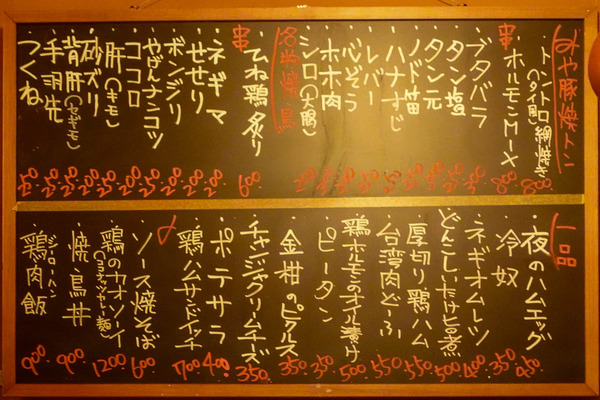 みや豚焼トン
・トントロ(タイ風)網焼き 800
串
・ホルモンMIX 800
・ブタバラ 250
・タン塩 250
・タン元 250
・ノド笛 250
・ハナすじ
・レバー
・心ぞう
・ホホ肉
・シロ(大腸) 200
名物焼鳥
・ひね鶏炙り 600
串
・ネギマ 200
・せせり 200
・ボンジリ 200
・やげんナンコツ 250
・ココロ 200
・肝(キモ) 250
・砂ズリ 200
・背肝(セギモ) 250
・手羽先 250
・つくね 250
一品
・夜のハムエッグ 450
・冷奴 350
・ネギオムレツ 400
・どんこしいたけ旨煮 500
・厚切り鶏ハム 550
・台湾肉どーふ 550
・鶏ホルモンのオイル漬け 500
・ピータン 350
・金柑のピクルス 350
・チャンジャクリームチーズ 350
・ポテサラ 400
〆
・鶏ハムサンドイッチ 700
・ソース焼そば 600
・鶏のカオソーイ(ココナッツカレー麺) 1200
・焼鳥丼 900
・鶏肉飯(ジーローハン) 900